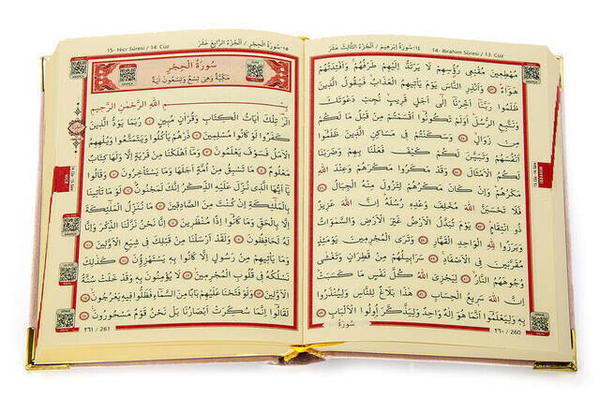 14- İbrahim Sûresi / 13. Cüz
١٤-سورة ابراهيم / الجزء الثالث عشر
مُهْطِعِينَ مُقْنِعِى رُؤُسِهِمْ لَا يَرْتَدُّ اِلَيْهِمْ طَرْفُهُمْ وَاَفْـِٔدَتُهُمْ
هَوَاءٌ ۞ وَاَنْذِرِ النَّاسَ يَوْمَ يَأْتِيهِمُ الْعَذَابُ فَيَقُولُ الَّذِينَ
ظَلَمُوا رَبَّنَا اَخِّرْنَا اِلٰى اَجَلٍ قَرِيبٍ نُجِبْ دَعْوَتَكَ
وَنَتَّبِعِ الرُّسُلَ اَوَلَمْ تَكُونُوا اَقْسَمْتُمْ مِنْ قَبْلُ مَا لَكُمْ
مِنْ زَوَالٍ ۞ وَسَكَنْتُمْ فِى مَسَاكِنِ الَّذِينَ ظَلَمُوا
اَنْفُسَهُمْ وَتَبَيَّنَ لَكُمْ كَيْفَ فَعَلْنَا بِهِمْ وَضَرَبْنَا
لَكُمُ الْاَمْثَالَ ۞ وَقَدْ مَكَرُوا مَكْرَهُمْ وَعِنْدَ اللهِ
مَكْرُهُمْ وَاِنْ كَانَ مَكْرُهُمْ لِتَزُولَ مِنْهُ الْجِبَالُ ۞
فَلَا تَحْسَبَنَّ اللهَ مُخْلِفَ وَعْدِهِ رُسُلَهُ اِنَّ اللهَ عَزِيزٌ
ذُو انْتِقَامٍ ۞ يَوْمَ تُبَدَّلُ الْاَرْضُ غَيْرَ الْاَرْضِ وَالسَّمٰوَاتُ
وَبَرَزُوا لِلّٰهِ الْوَاحِدِ الْقَهَّارِ ۞ وَتَرَى الْمُجْرِمِينَ يَوْمَئِذٍ
مُقَرَّنِينَ فِى الْاَصْفَادِ ۞ سَرَابِيلُهُمْ مِنْ قَطِرَانٍ وَتَغْشٰى
وُجُوهَهُمُ النَّارُ ۞ لِيَجْزِىَ اللهُ كُلَّ نَفْسٍ مَا كَسَبَتْ
اِنَّ اللهَ سَرِيعُ الْحِسَابِ ۞ هٰذَا بَلَاغٌ لِلنَّاسِ وَلِيُنْذَرُوا
بِهِ وَلِيَعْلَمُوا اَنَّمَا هُوَ اِلٰهٌ وَاحِدٌ وَلِيَذَّكَّرَ اُولُوا الْاَلْبَابِ
سورة
٢٦٠ / 260
15- Hicr Sûresi / 14. Cüz
١٥-سورة الحجر / الجزء الرابع عشر
سُورَةُ الْحِجْرِ
مَكِّيَّةٌ وَهِىَ تِسْعٌ وَتِسْعُونَ اٰيَةً
بِسْمِ اللهِ الرَّحْمٰنِ الرَّحِيمِ
الٓرٰ تِلْكَ اٰيَاتُ الْكِتَابِ وَقُرْاٰنٍ مُبِينٍ ۞ رُبَمَا يَوَدُّ الَّذِينَ
كَفَرُوا لَوْ كَانُوا مُسْلِمِينَ ۞ ذَرْهُمْ يَأْكُلُوا وَيَتَمَتَّعُوا وَيُلْهِهِمُ
الْاَمَلُ فَسَوْفَ يَعْلَمُونَ ۞ وَمَا اَهْلَكْنَا مِنْ قَرْيَةٍ اِلَّا وَلَهَا كِتَابٌ
مَعْلُومٌ ۞ مَا تَسْبِقُ مِنْ اُمَّةٍ اَجَلَهَا وَمَا يَسْتَأْخِرُونَ ۞ وَقَالُوا
يَا اَيُّهَا الَّذِى نُزِّلَ عَلَيْهِ الذِّكْرُ اِنَّكَ لَمَجْنُونٌ ۞ لَوْ مَا تَأْتِينَا
بِالْمَلٰئِكَةِ اِنْ كُنْتَ مِنَ الصَّادِقِينَ ۞ مَا نُنَزِّلُ الْمَلٰئِكَةَ
اِلَّا بِالْحَقِّ وَمَا كَانُوا اِذًا مُنْظَرِينَ ۞ اِنَّا نَحْنُ نَزَّلْنَا الذِّكْرَ وَاِنَّا
لَهُ لَحَافِظُونَ ۞ وَلَقَدْ اَرْسَلْنَا مِنْ قَبْلِكَ فِى شِيَعِ الْاَوَّلِينَ ۞
وَمَا يَأْتِيهِمْ مِنْ رَسُولٍ اِلَّا كَانُوا بِهِ يَسْتَهْزِؤُنَ ۞ كَذٰلِكَ
نَسْلُكُهُ فِى قُلُوبِ الْمُجْرِمِينَ ۞ لَا يُؤْمِنُونَ بِهِ وَقَدْ خَلَتْ سُنَّةُ
الْاَوَّلِينَ ۞ وَلَوْ فَتَحْنَا عَلَيْهِمْ بَابًا مِنَ السَّمَاءِ فَظَلُّوا فِيهِ يَعْرُجُونَ ۞
لَقَالُوا اِنَّمَا سُكِّرَتْ اَبْصَارُنَا بَلْ نَحْنُ قَوْمٌ مَسْحُورُونَ ۞
٢٦١ / 261